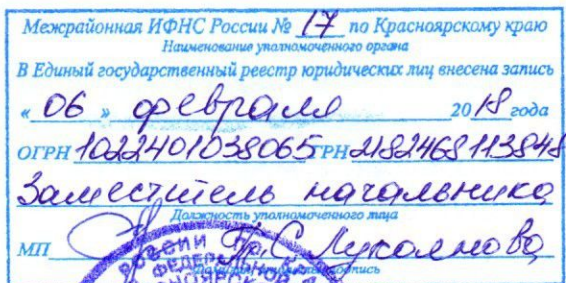 Межрайонная ИФНС России № 17 по Красноярскому краю
Наименование уполномоченного органа
В Единый государственный реестр юридических лиц внесена запись
« 06 » февраля 2018 года
ОГРН 1022401038065 ГРН 2182468113848
Заместитель начальника
Должность уполномоченного лица
МП
РОССИИ